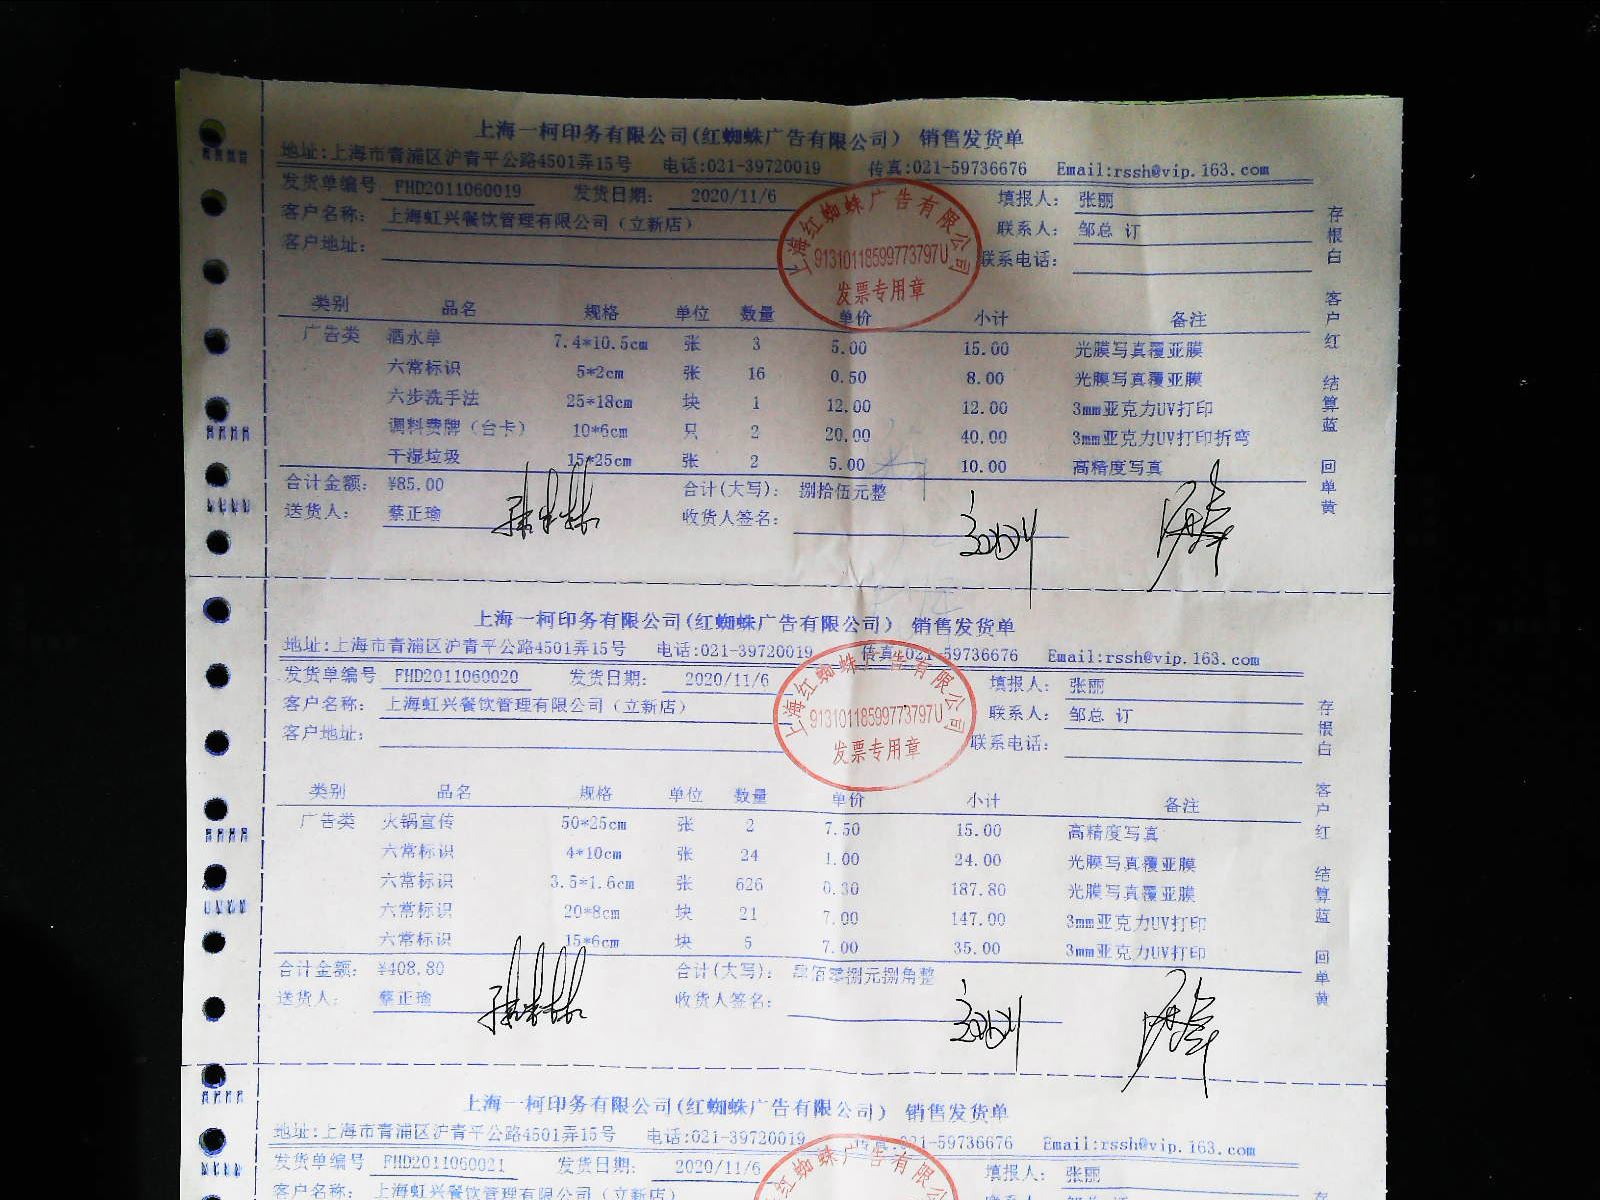 上海一柯印务有限公司(红蜘蛛广告有限公司) 销售发货单
地址:上海市青浦区沪青平公路4501弄15号 电话:021-39720019 传真:021-59736676 Email:rssh@vip.163.com
发货单编号 FHD2011060019 发货日期: 2020/11/6 填报人: 张丽
客户名称: 上海虹兴餐饮管理有限公司（立新店） 联系人: 邹总 订
客户地址: 联系电话:
上海红蜘蛛广告有限公司
91310118599773797U
发票专用章
存根白 客户红 结算蓝 回单黄
类别 品名 规格 单位 数量 单价 小计 备注
广告类 酒水单 7.4*10.5cm 张 3 5.00 15.00 光膜写真覆亚膜
六常标识 5*2cm 张 16 0.50 8.00 光膜写真覆亚膜
六步洗手法 25*18cm 块 1 12.00 12.00 3mm亚克力UV打印
调料费牌（台卡） 10*6cm 只 2 20.00 40.00 3mm亚克力UV打印折弯
干湿垃圾 15*25cm 张 2 5.00 10.00 高精度写真
合计金额: ¥85.00 合计(大写): 捌拾伍元整
送货人: 蔡正瑜 收货人签名:
上海一柯印务有限公司(红蜘蛛广告有限公司) 销售发货单
地址:上海市青浦区沪青平公路4501弄15号 电话:021-39720019 传真:021-59736676 Email:rssh@vip.163.com
发货单编号 FHD2011060020 发货日期: 2020/11/6 填报人: 张丽
客户名称: 上海虹兴餐饮管理有限公司（立新店） 联系人: 邹总 订
客户地址: 联系电话:
上海红蜘蛛广告有限公司
91310118599773797U
发票专用章
存根白 客户红 结算蓝 回单黄
类别 品名 规格 单位 数量 单价 小计 备注
广告类 火锅宣传 50*25cm 张 2 7.50 15.00 高精度写真
六常标识 4*10cm 张 24 1.00 24.00 光膜写真覆亚膜
六常标识 3.5*1.6cm 张 626 0.30 187.80 光膜写真覆亚膜
六常标识 20*8cm 块 21 7.00 147.00 3mm亚克力UV打印
六常标识 15*6cm 块 5 7.00 35.00 3mm亚克力UV打印
合计金额: ¥408.80 合计(大写): 肆佰零捌元捌角整
送货人: 蔡正瑜 收货人签名:
上海一柯印务有限公司(红蜘蛛广告有限公司) 销售发货单
地址:上海市青浦区沪青平公路4501弄15号 电话:021-39720019 传真:021-59736676 Email:rssh@vip.163.com
发货单编号 FHD2011060021 发货日期: 2020/11/6 填报人: 张丽
客户名称: 上海虹兴餐饮管理有限公司（立新店）
红蜘蛛广告有限